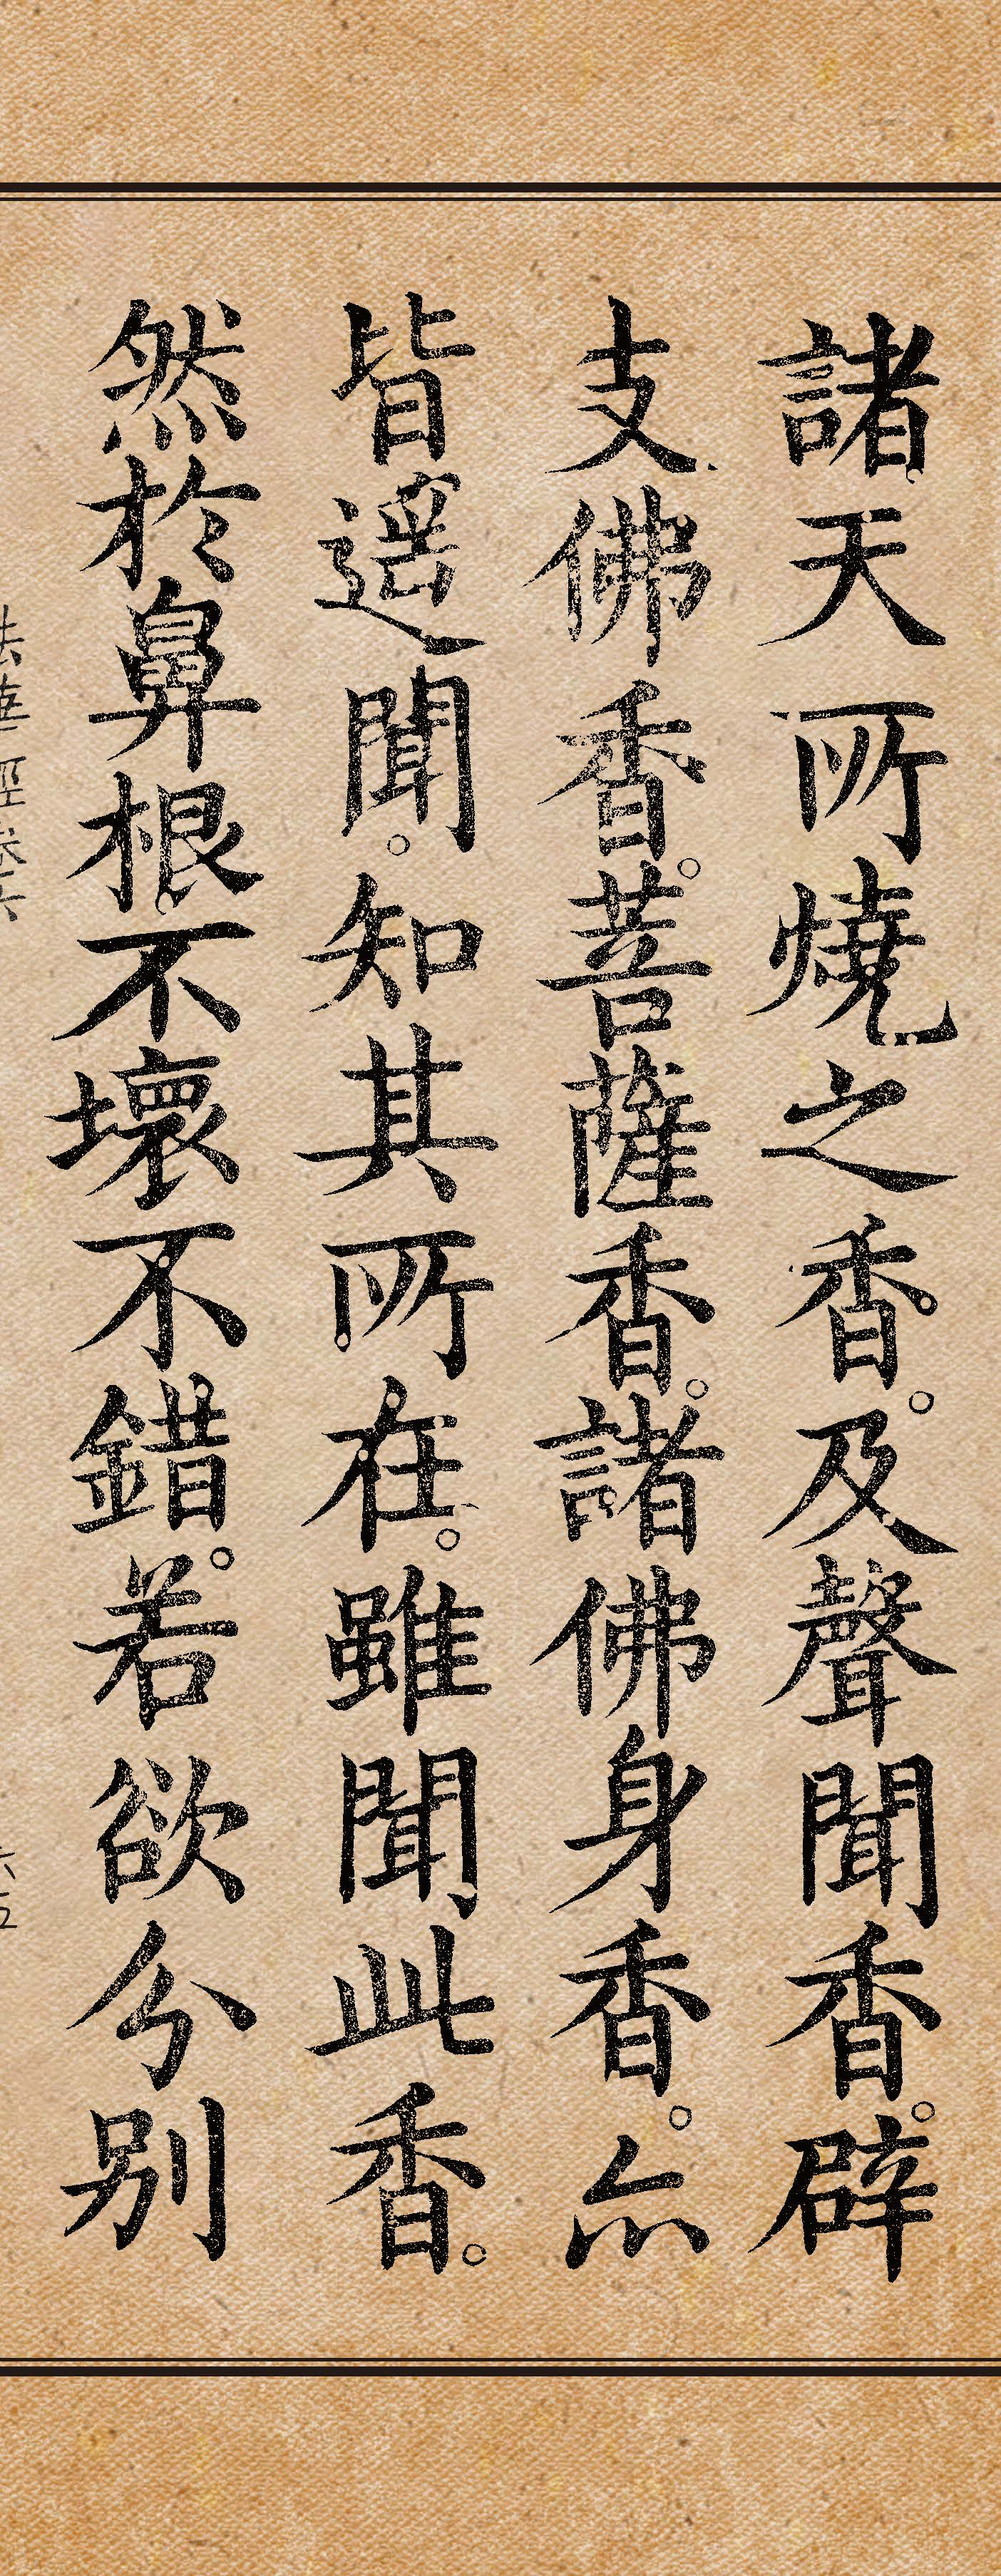 諸天所燒之香。及聲聞香。辟
支佛香。菩薩香。諸佛身香。亦
皆遥聞。知其所在。雖聞此香。
然於鼻根不壞不錯。若欲分別
法華經卷六 六五